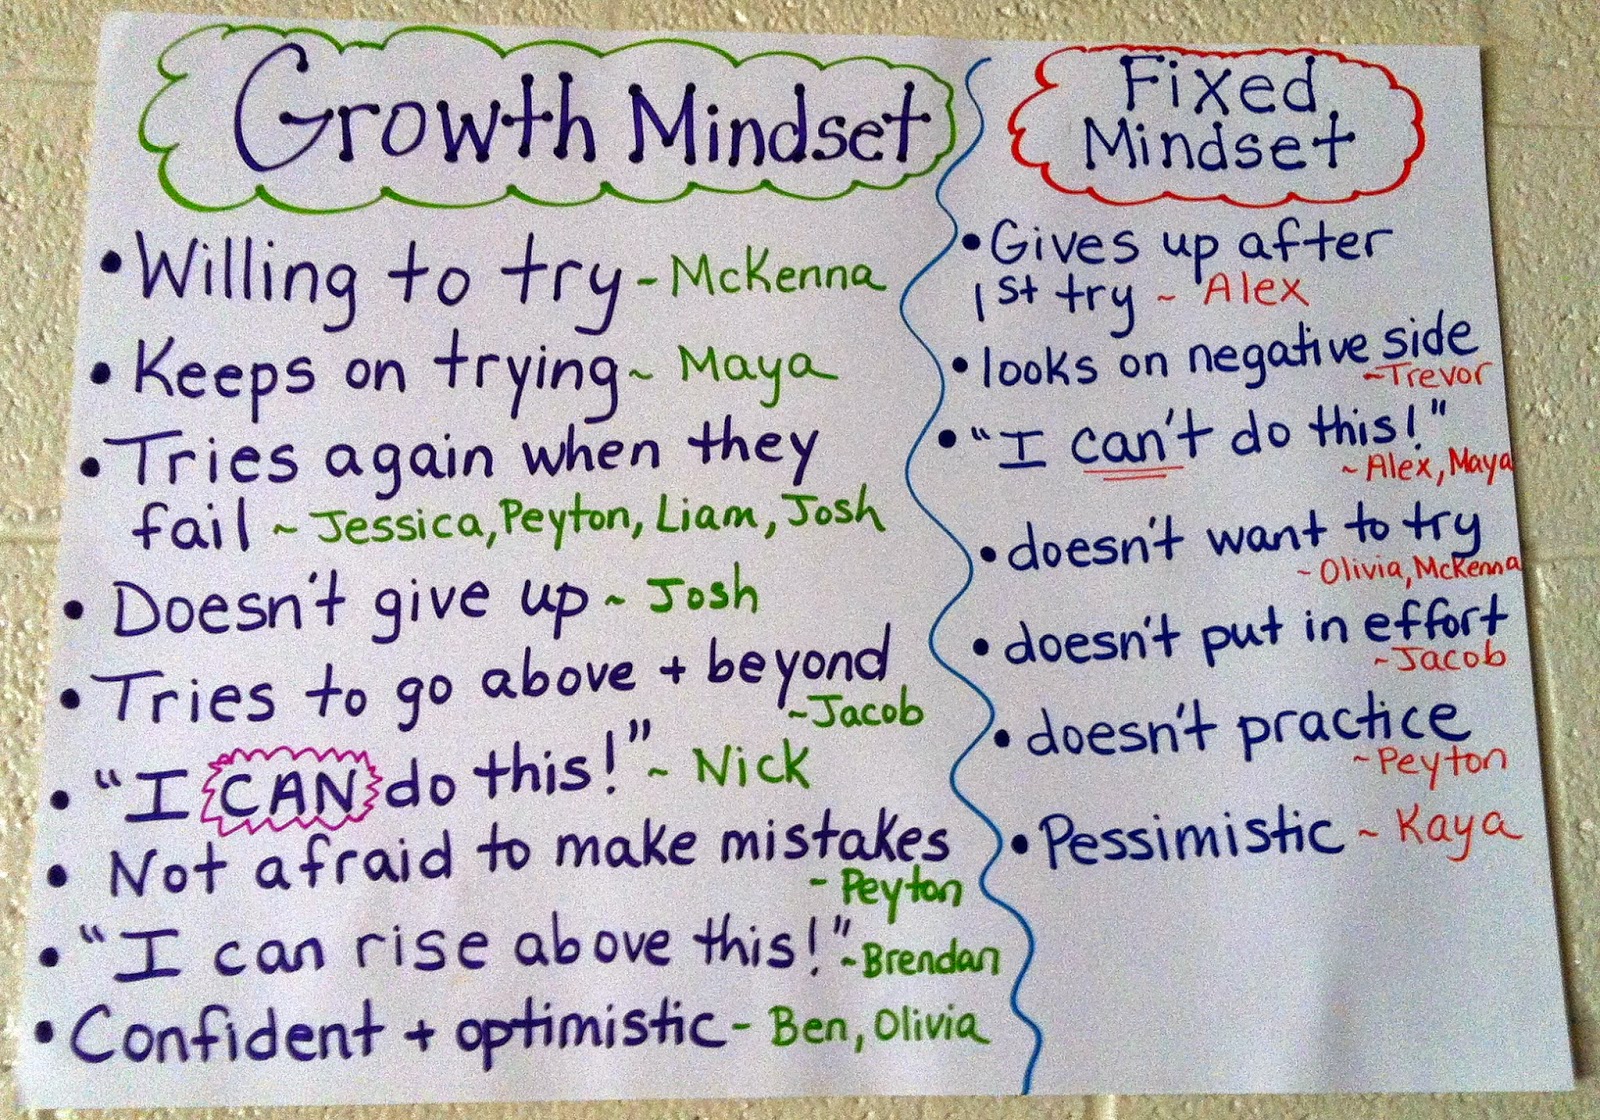 Growth Mindset
• Willing to try - McKenna
• Keeps on trying ~ Maya
• Tries again when they
fail ~ Jessica, Peyton, Liam, Josh
• Doesn't give up ~ Josh
• Tries to go above + beyond
~Jacob
• "I CAN do this!" ~ Nick
• Not afraid to make mistakes
- Peyton
• "I can rise above this!" ~Brendan
• Confident + optimistic - Ben, Olivia
Fixed
Mindset
• Gives up after
1st try ~ Alex
• looks on negative side
~Trevor
• "I can't do this!"
~ Alex, Maya
• doesn't want to try
~ Olivia, McKenna
• doesn't put in effort
~Jacob
• doesn't practice
~Peyton
• Pessimistic ~ Kaya